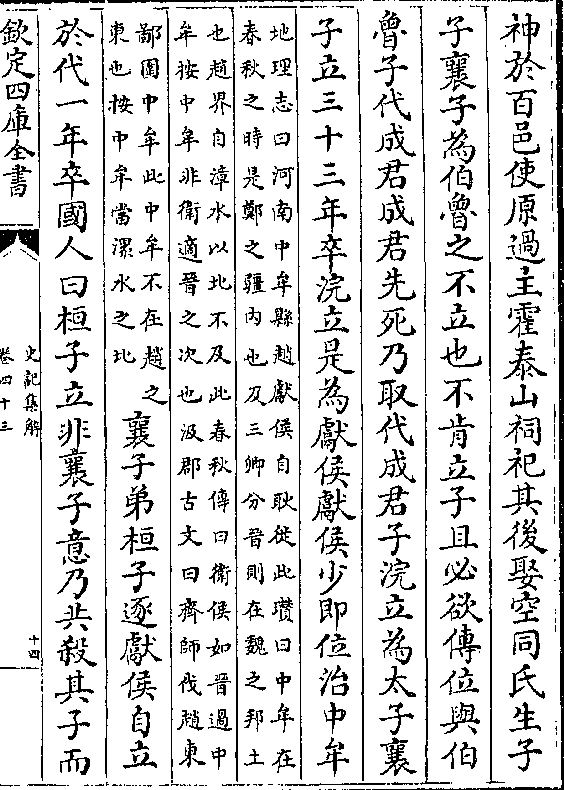 神於百邑使原過主霍泰山祠祀其後娶空同氏生子
子襄子為伯魯之不立也不肯立子且必欲傳位與伯
魯子代成君成君先死乃取代成君子浣立為太子襄
子立三十三年卒浣立是為獻侯獻侯少即位治中牟
地理志曰河南中牟縣趙獻侯自耿徙此瓚曰中牟在
春秋之時是鄭之疆內也及三卿分晉則在魏之邦土
也趙界自漳水以北不及此春秋傳曰衛侯如晉過中
牟按中牟非衛適晉之次也汲郡古文曰齊師伐趙東
鄙圍中牟此中牟不在趙之
東也按中牟當漯水之北
襄子弟桓子逐獻侯自立
於代一年卒國人曰桓子立非襄子意乃共殺其子而
欽定四庫全書
史記集解
卷四十三
十四